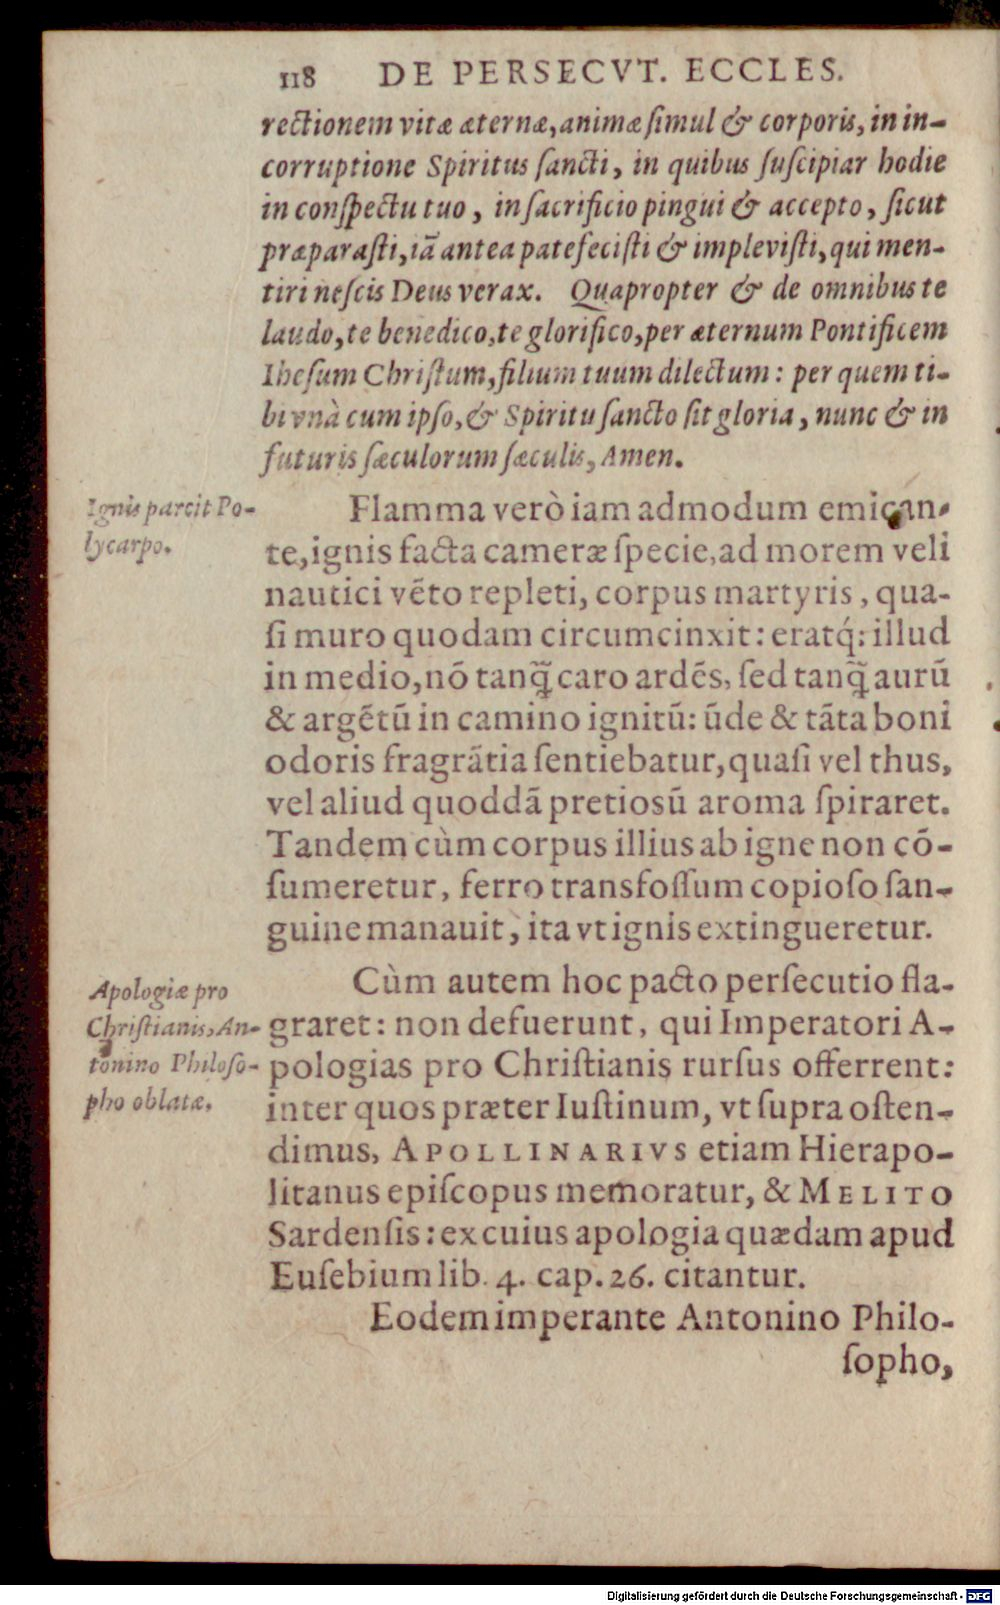 118 DE PERSECVT. ECCLES.
rectionem vitæ æternæ, animæ ſimul & corporis, in in-
corruptione Spiritus ſancti, in quibus ſuſcipiar hodie
in conſpectu tuo, in ſacrificio pingui & accepto, ſicut
præparaſti, iā antea patefeciſti & impleviſti, qui men-
tiri neſcis Deus verax. Quapropter & de omnibus te
laudo, te benedico, te glorifico, per æternum Pontificem
Iheſum Chriſtum, filium tuum dilectum: per quem ti-
bi vnà cum ipſo, & Spiritu ſancto ſit gloria, nunc & in
futuris ſæculorum ſæculis, Amen.
Ignis parcit Po-
lycarpo.
Flamma verò iam admodum emican-
te, ignis facta cameræ ſpecie, ad morem veli
nautici vēto repleti, corpus martyris, qua-
ſi muro quodam circumcinxit: eratq́; illud
in medio, nō tanq̃ caro ardēs, ſed tanq̃ aurū
& argētū in camino ignitū: ūde & tāta boni
odoris fragrātia ſentiebatur, quaſi vel thus,
vel aliud quoddā pretiosū aroma ſpiraret.
Tandem cùm corpus illius ab igne non cō-
ſumeretur, ferro transfoſſum copioſo ſan-
guine manauit, ita vt ignis extingueretur.
Apologiæ pro
Chriſtianis, An-
tonino Philoſo-
pho oblatæ.
Cùm autem hoc pacto perſecutio fla-
graret: non defuerunt, qui Imperatori A-
pologias pro Chriſtianis rurſus offerrent:
inter quos præter Iuſtinum, vt ſupra oſten-
dimus, APOLLINARIVS etiam Hierapo-
litanus epiſcopus memoratur, & MELITO
Sardenſis: ex cuius apologia quædam apud
Euſebium lib. 4. cap. 26. citantur.
Eodem imperante Antonino Philo-
ſopho,
Digitalisierung gefördert durch die Deutsche Forschungsgemeinschaft - DFG